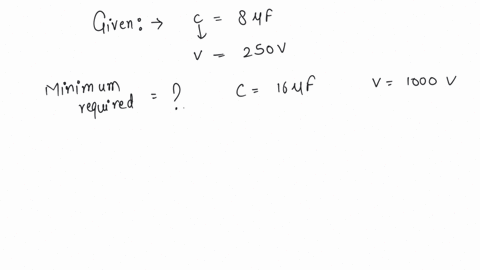 Given: → C = 8 μF
↓
V = 250V
Minimum required = ? C = 16 μF V = 1000 V